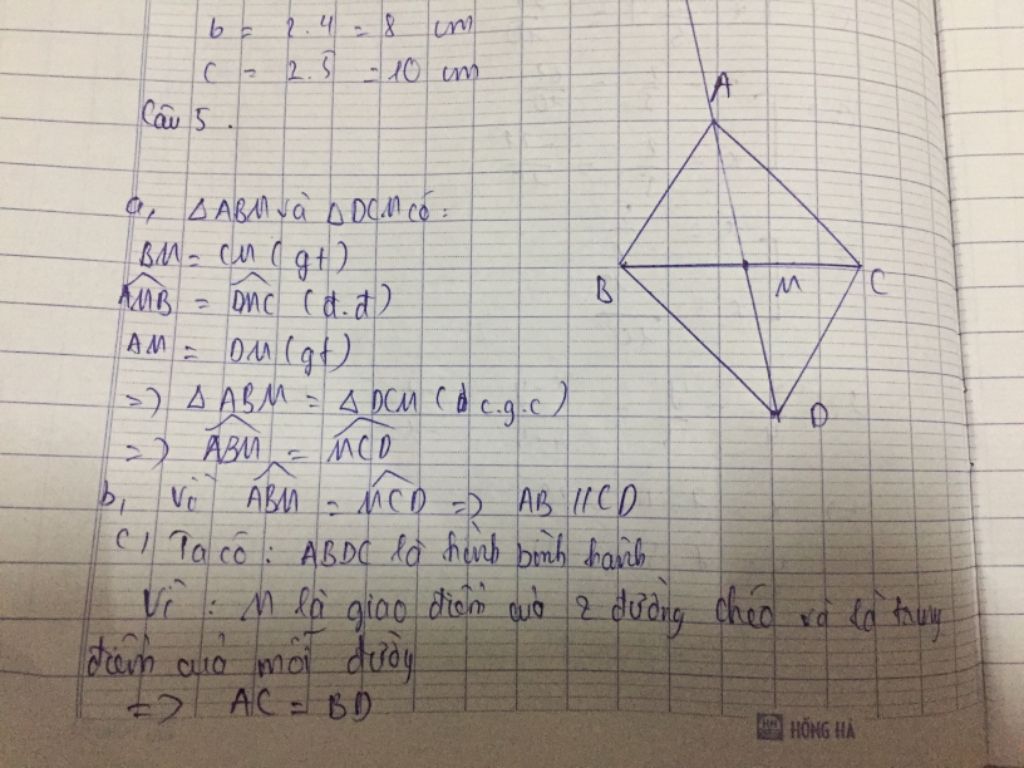 b = 2.4 = 8 cm
c = 2.5 = 10 cm
Câu 5.
a, △ABM và △DCM có:
BM = CM (gt)
\widehat{AMB} = \widehat{DMC} (đ.đ)
AM = DM (gt)
=> △ABM = △DCM (c.g.c)
=> \widehat{ABM} = \widehat{MCD}
b, Vì \widehat{ABM} = \widehat{MCD} => AB // CD
c, Ta có: ABDC là hình bình hành
Vì: M là giao điểm của 2 đường chéo và là trung
điểm của mỗi đường
=> AC = BD
A
B
M
C
D
HỒNG HÀ